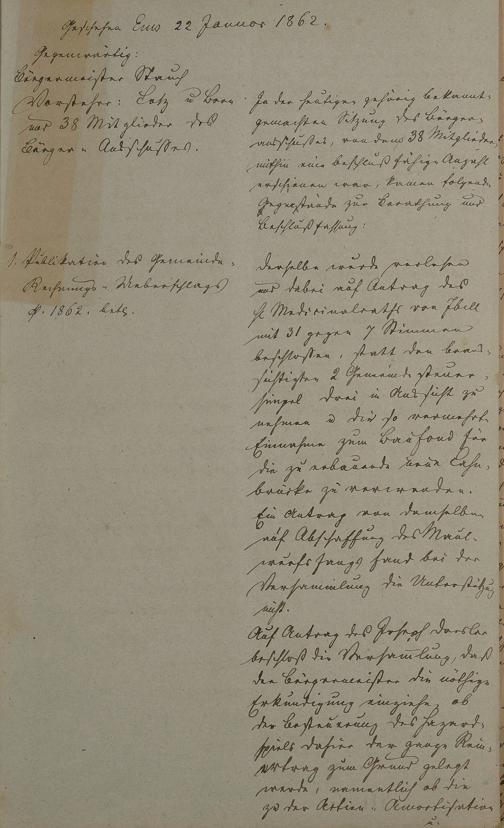 Geschehen Ems 22 Januar 1862.
Gegenwärtig:
Bürgermeister Stauch
Vorsteher: Lotz u Born
und 38 Mitglieder des
Bürger-Ausschusses.
In der heutigen gehörig bekannt
gemachten Sitzung des Bürger-
ausschusses, von dem 38 Mitglieder,
mithin eine beschlußfähige Anzahl
erschienen war, kamen folgende
Gegenstände zur Berathung und
Beschlußfassung:
1. Publikation des Gemeinde-
Rechnungs-Ueberschlags
p. 1862. betr.
Derselbe wurde verlesen
und dabei auf Antrag des
H Medicinalraths von Ibell
mit 31 gegen 7 Stimmen
beschlossen, statt den beab-
sichtigten 2 Gemeinde steuer-
simpel drei in Aussicht zu
nehmen u die so vermehrte
Einnahme zum Baufond für
die zu erbauende neue Lahn-
brücke zu verwenden.
Ein Antrag von demselben
auf Abschaffung des Maul-
wurfsfangs fand bei der
Versammlung die Unterstützung
nicht.
Auf Antrag des Joseph
beschloß die Versammlung, daß
der Bürgermeister die nöthige
Erkundigung einziehe, ob
der Besteuerung des Hazard-
spiels dahier der ganze Rein-
ertrag zum Grund gelegt
werde, namentlich ob die
zu der Actien-Amortisation